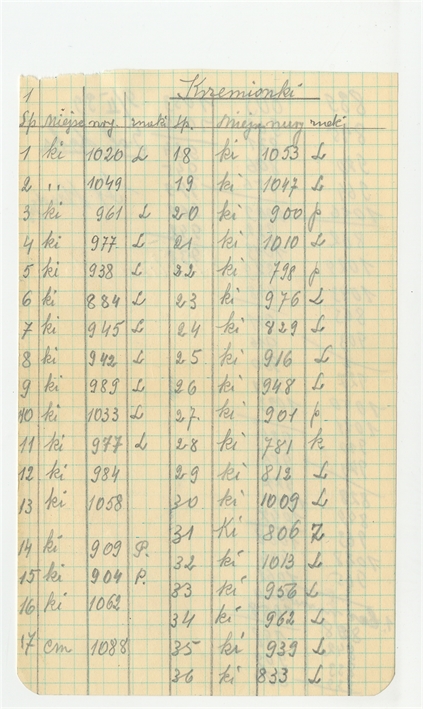 1 Krzemionki
Lp. miejsc nry znaki Lp. miejsc nry znaki
1 ki 1020 L 18 ki 1053 L
2 ,, 1049 19 ki 1047 L
3 ki 961 L 20 ki 900 p
4 ki 977 L 21 ki 1010 L
5 ki 938 L 22 ki 798 p
6 ki 884 L 23 ki 976 L
7 ki 945 L 24 ki 829 L
8 ki 942 L 25 ki 916 L
9 ki 989 L 26 ki 948 L
10 ki 1033 L 27 ki 901 p.
11 ki 977 L 28 ki 781 k
12 ki 984 29 ki 812 L
13 ki 1058 30 ki 1009 L
31 Ki 806 Z
14 ki 909 P. 32 ki 1013 L
15 ki 904 P. 33 ki 956 L
16 ki 1062 34 ki 962 L
17 cm 1088 35 ki 939 L
36 ki 833 L